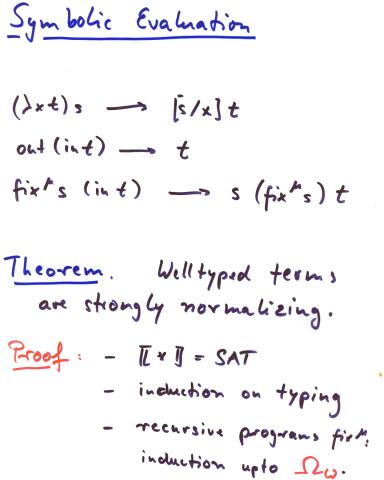 Symbolic Evaluation
(λx t) s → [s/x] t
out (in t) → t
fix^μ s (in t) → s (fix^μ s) t
Theorem. Welltyped terms
are strongly normalizing.
Proof: - ⟦*⟧ = SAT
- induction on typing
- recursive programs fix^μ:
induction upto Ω_ω.